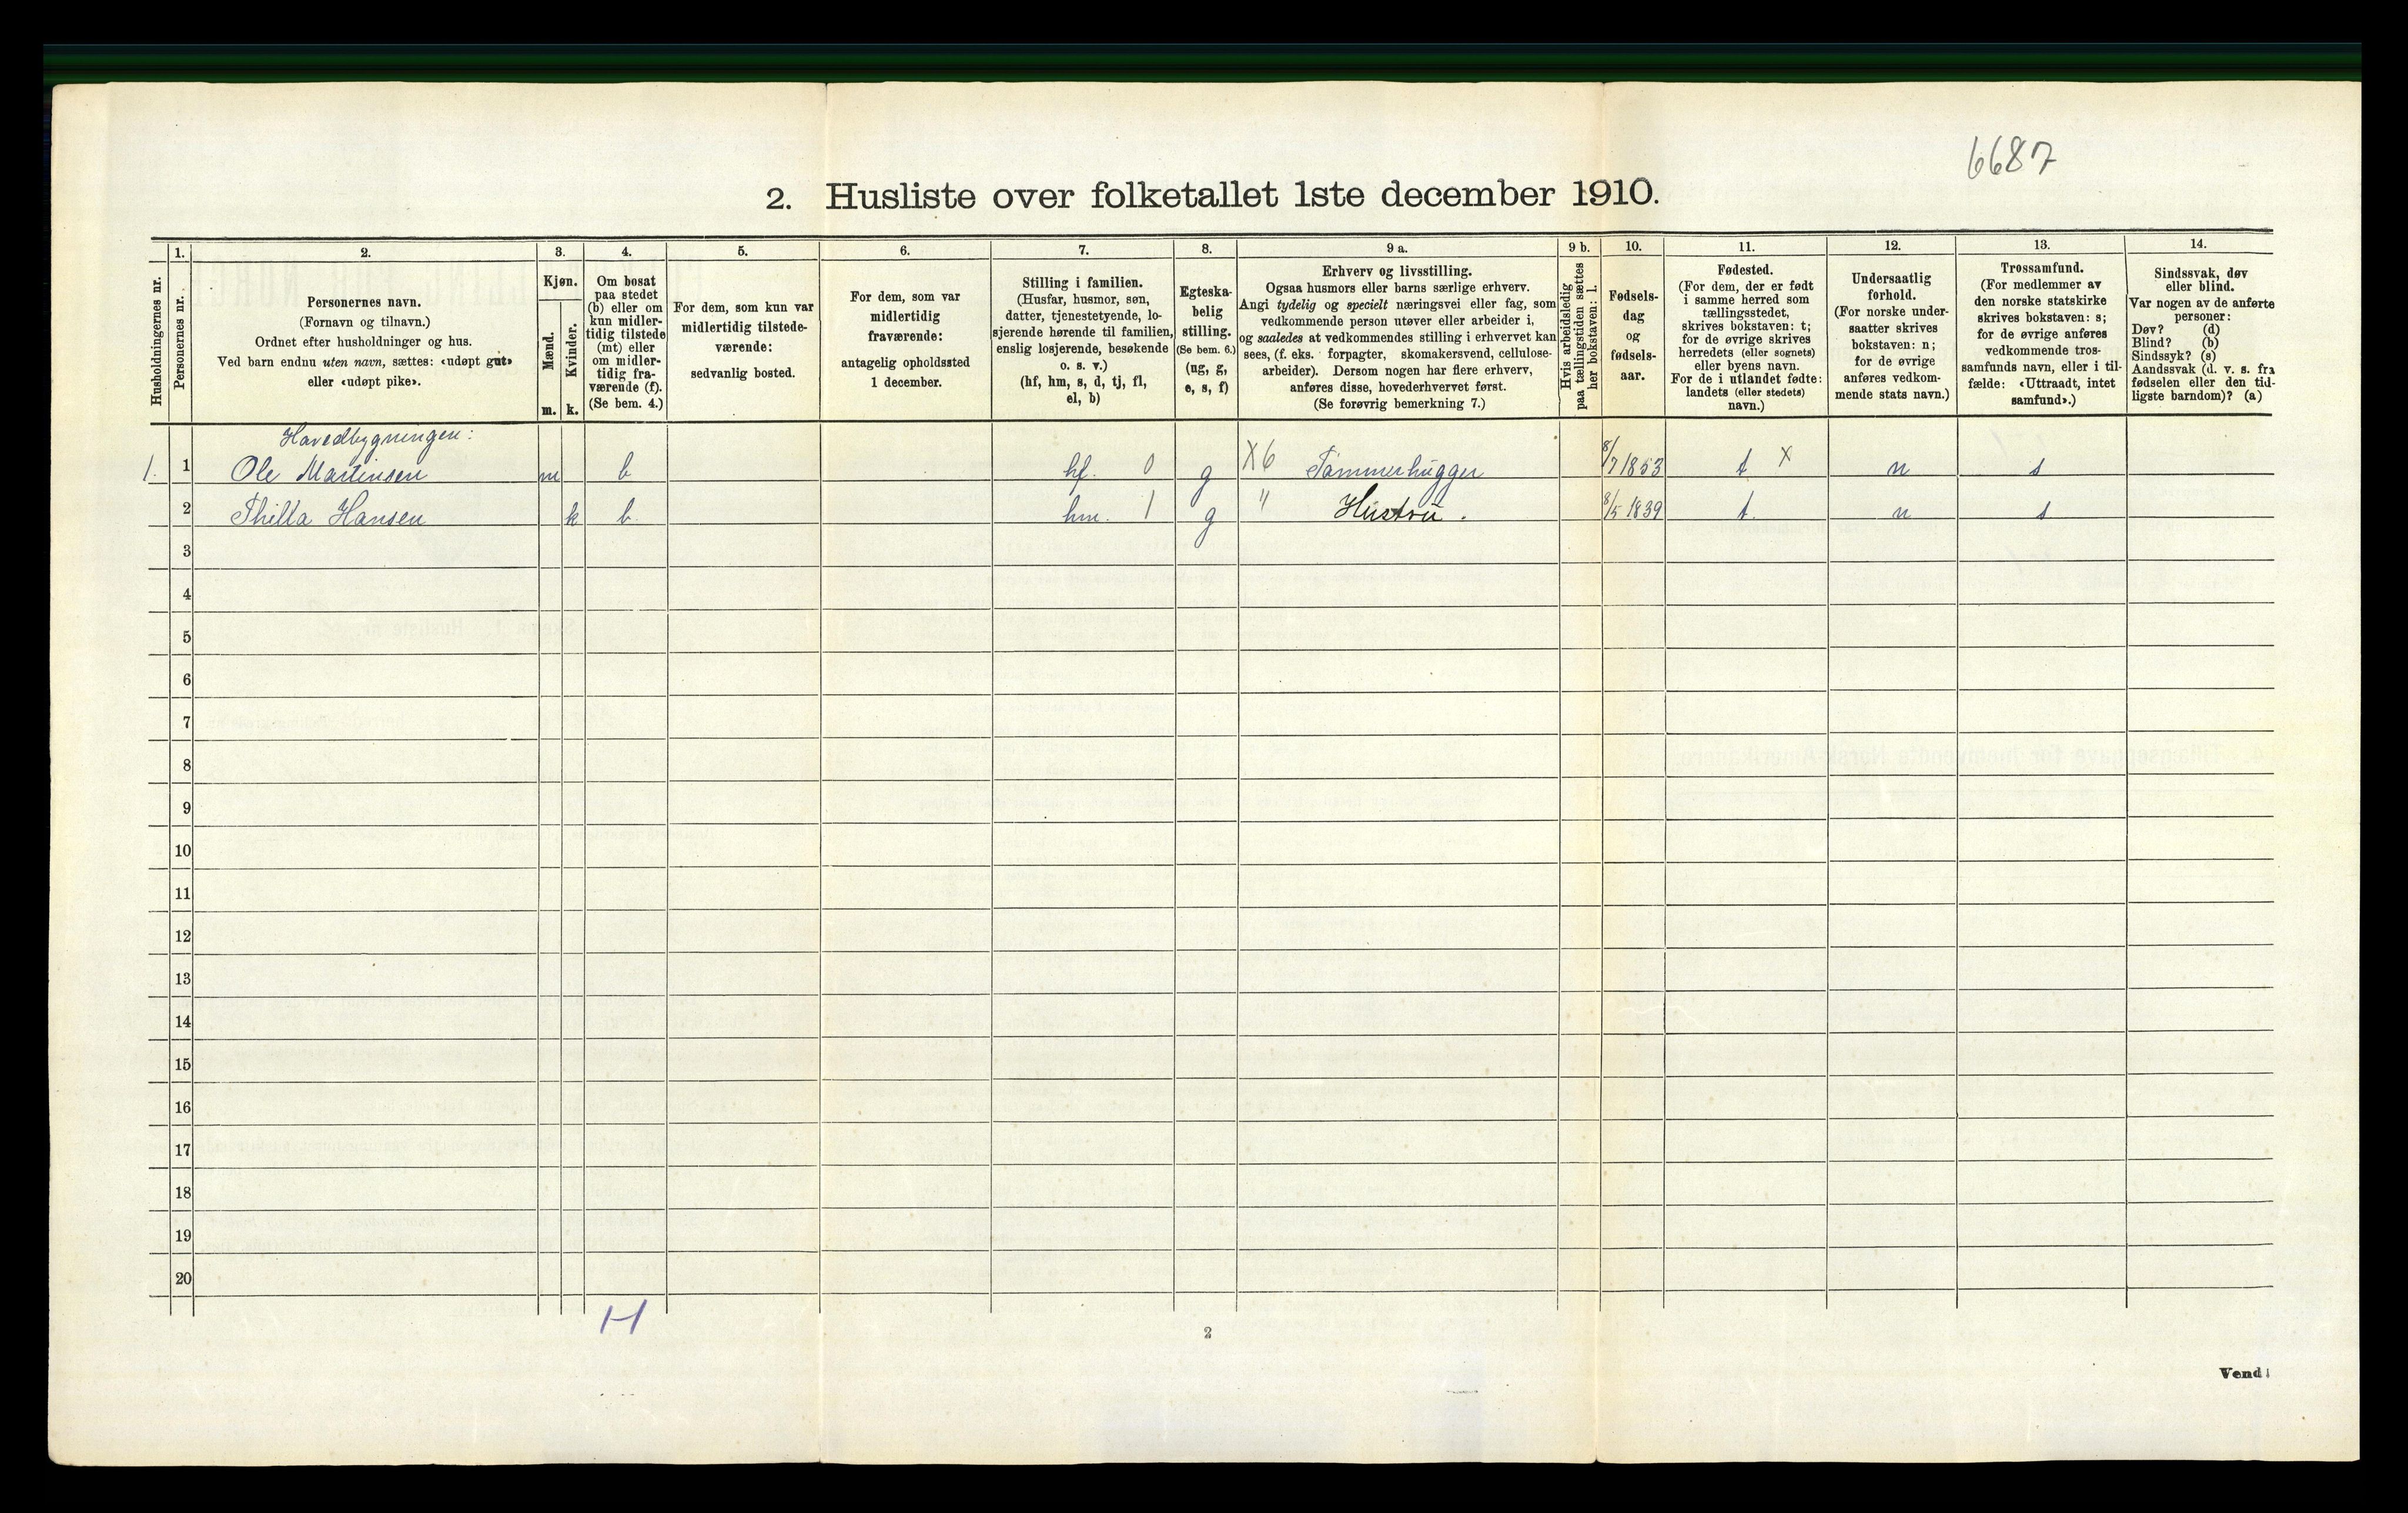 6687
2. Husliste over folketallet 1ste december 1910.
Husholdningernes nr.
1.
Personernes nr.
2.
Personernes navn.
(Fornavn og tilnavn.)
Ordnet efter husholdninger og hus.
Ved barn endnu uten navn, sættes: «udøpt gut»
eller «udøpt pike».
3.
Kjøn.
Mænd.
m.
Kvinder.
k.
4.
Om bosat
paa stedet
(b) eller om
kun midler-
tidig tilstede
(mt) eller
om midler-
tidig fra-
værende (f).
(Se bem. 4.)
5.
For dem, som kun var
midlertidig tilstede-
værende:
sedvanlig bosted.
6.
For dem, som var
midlertidig
fraværende:
antagelig opholdssted
1 december.
7.
Stilling i familien.
(Husfar, husmor, søn,
datter, tjenestetyende, lo-
sjerende hørende til familien,
enslig losjerende, besøkende
o. s. v.)
(hf, hm, s, d, tj, fl,
el, b)
8.
Egteska-
belig
stilling.
(Se bem. 6.)
(ug, g,
e, s, f)
9 a.
Erhverv og livsstilling.
Ogsaa husmors eller barns særlige erhverv.
Angi tydelig og specielt næringsvei eller fag, som
vedkommende person utøver eller arbeider i,
og saaledes at vedkommendes stilling i erhvervet kan
sees, (f. eks. forpagter, skomakersvend, cellulose-
arbeider). Dersom nogen har flere erhverv,
anføres disse, hovederhvervet først.
(Se forøvrig bemerkning 7.)
9 b.
Hvis arbeidsledig
paa tællingstiden sættes
her bokstaven: l.
10.
Fødsels-
dag
og
fødsels-
aar.
11.
Fødested.
(For dem, der er født
i samme herred som
tællingsstedet,
skrives bokstaven: t;
for de øvrige skrives
herredets (eller sognets)
eller byens navn.
For de i utlandet fødte:
landets (eller stedets)
navn.)
12.
Undersaatlig
forhold.
(For norske under-
saatter skrives
bokstaven: n;
for de øvrige
anføres vedkom-
mende stats navn.)
13.
Trossamfund.
(For medlemmer av
den norske statskirke
skrives bokstaven: s;
for de øvrige anføres
vedkommende tros-
samfunds navn, eller i til-
fælde: «Uttraadt, intet
samfund».)
14.
Sindssvak, døv
eller blind.
Var nogen av de anførte
personer:
Døv? (d)
Blind? (b)
Sindssyk? (s)
Aandssvak (d. v. s. fra
fødselen eller den tid-
ligste barndom)? (a)
Hovedbygningen:
1. 1 Ole Martinsen m b hf. 0 g X6 Tømmerhugger 8/7 1853 t X n s
2 Thilla Hansen k b. hm. 1 g " Hustru. 8/5 1839 t. n s
3
4
5
6
7
8
9
10
11
12
13
14
15
16
17
18
19
20
H
2
Vend!